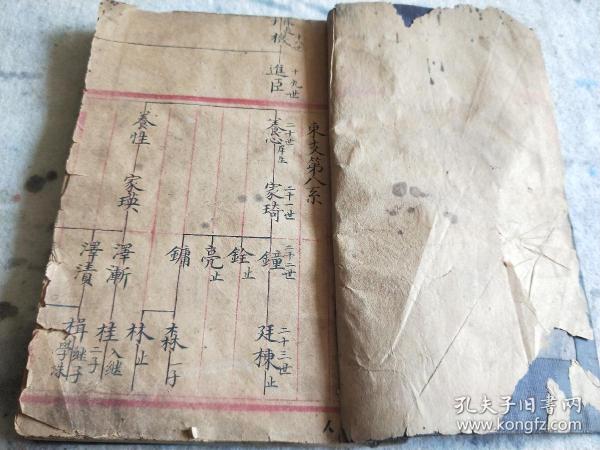 東支第八系
十八世
機
十九世
進臣
二十世
養心
庠生
養性
二十一世
家琦
家瑛
二十二世
鐘
銓止
亮止
鏞
澤漸
澤漬
二十三世
廷棟止
森一子
林止
桂
入繼
二子
楫
繼子
學珠
孔夫子旧书网
kongfz.com